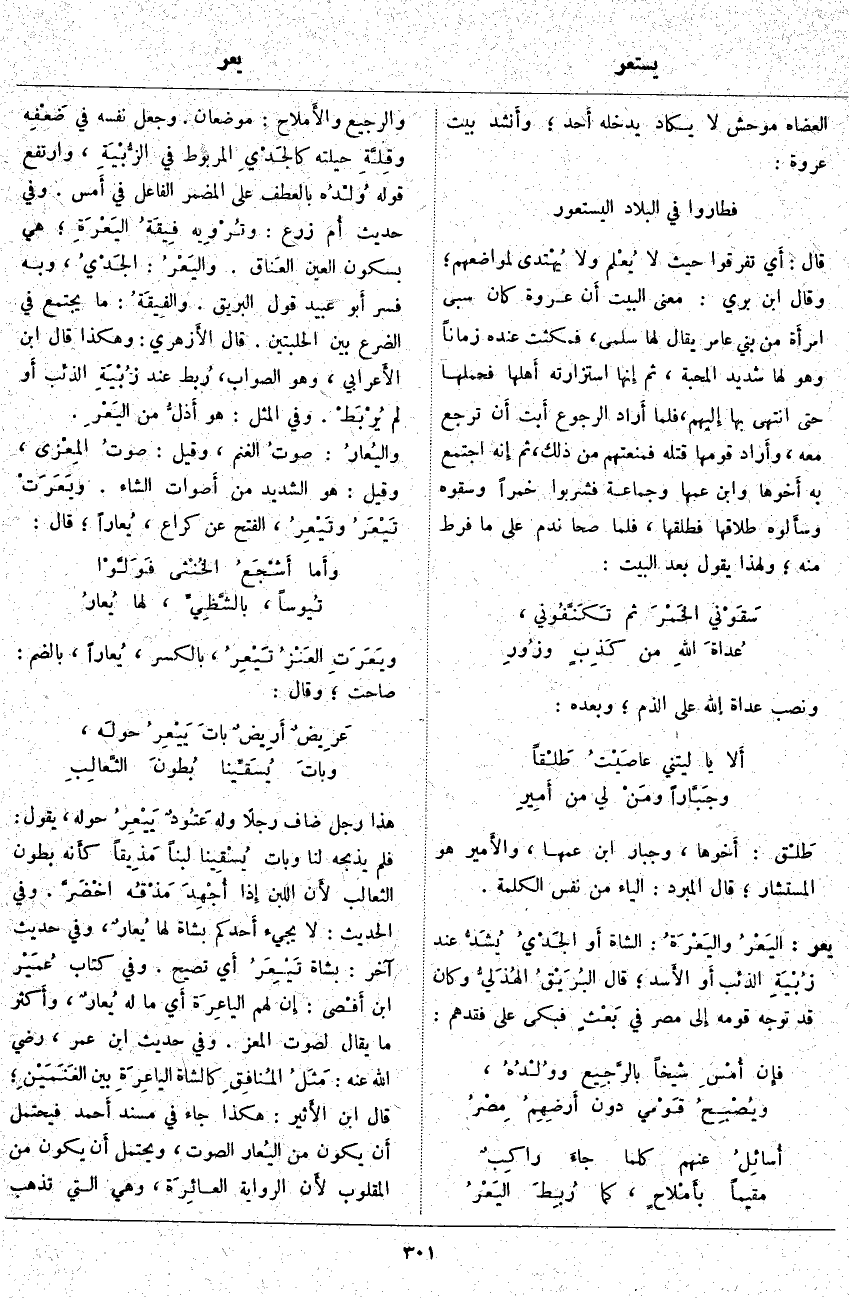 يستعر
يعر
العضاه موحش لا يكاد يدخله أحد ؛ وأنشد بيت
عروة :
فطاروا في البلاد اليستعور
قال : أي تفرقوا حيث لا يُعْلم ولا يُهْتدى لمواضعهم ؛
وقال ابن بري : معنى البيت أن عروة كان سبى
امرأة من بني عامر يقال لها سلمى ، فمكثت عنده زماناً
وهو لها شديد المحبة ، ثم إنها استزارته أهلها فحملها
حتى انتهى بها إليهم ، فلما أراد الرجوع أبت أن ترجع
معه ، وأراد قومها قتله فمنعتهم من ذلك ، ثم إنه اجتمع
به أخوها وابن عمها وجماعة فشربوا خمراً وسقوه
وسألوه طلاقها فطلقها ، فلما صحا ندم على ما فرط
منه ؛ ولهذا يقول بعد البيت :
سَقَوْني الخَمْرَ ثم تَكَنَّفُوني ،
عُداةَ اللهِ من كَذِبٍ وزُورِ
ونصب عداة الله على الذم ؛ وبعده :
ألا يا ليتني عاصَيْتُ طَلْقاً
وجَبَّاراً ومَنْ لي من أَمِيرِ
طَلْق : أخوها ، وجبار ابن عمها ، والأمير هو
المستشار ؛ قال المبرد : الياء من نفس الكلمة .
يعر : اليَعْرُ واليَعْرَةُ : الشاة أو الجَدْيُ يُشَدُّ عند
زُبْيَةِ الذئب أو الأسد ؛ قال البُرَيْقُ الهُذَليُّ وكان
قد توجه قومه إلى مصر في بَعْثٍ فبكى على فقدهم :
فإن أُمْسِ شيخاً بالرَّجيع وولْدُهُ ،
ويُصْبِحُ قَوْمي دون أرضِهِمُ مِصْرُ
أُسائِلُ عنهم كلما جاءَ راكِبٌ
مقيماً بأَمْلاحٍ ، كما رُبِطَ اليَعْرُ
والرجيع والأَملاح : موضعان . وجعل نفسه في ضَعْفِهِ
وقِلَّةِ حيلته كالجَدْيِ المربوط في الزُّبْيَةِ ، وارتفع
قوله ولْدُه بالعطف على المضمر الفاعل في أُمس . وفي
حديث أُم زرع : وتُرْوِيه فِيقَةُ اليَعْرَةِ ؛ هي
بسكون العين العَناق . واليَعْرُ : الجَدْيُ ، وبه
فسر أبو عبيد قول البريق . والفيقَةُ : ما يجتمع في
الضرع بين الحلبتين . قال الأزهري : وهكذا قال ابن
الأعرابي ، وهو الصواب ، رُبط عند زُبْيَةِ الذئب أو
لم يُرْبَطْ . وفي المثل : هو أذلُّ من اليَعْرِ .
واليُعارُ : صوتُ الغنم ، وقيل : صوتُ المِعْزى ،
وقيل : هو الشديد من أصوات الشاء . ويَعَرَتْ
تَيْعَرُ وتَيْعِرُ ، الفتح عن كراع ، يُعاراً ؛ قال :
وأما أَشْجَعُ الخُنْثى فَوَلَّوْا
تُيوساً ، بالشَّظِيِّ ، لها يُعارُ
ويَعَرَتِ العَنْزُ تَيْعِرُ ، بالكسر ، يُعاراً ، بالضم :
صاحت ؛ وقال :
عَرِيضٌ أَرِيضٌ باتَ يَيْعِرُ حولَه ،
وباتَ يُسَقِّينا بُطونَ الثَّعالِبِ
هذا رجل ضاف رجلًا وله عَتُودٌ يَيْعِرُ حوله ، يقول :
فلم يذبحه لنا وبات يُسْقينا لبناً مَذيقاً كأنه بطون
الثعالب لأن اللبن إذا أُجْهِدَ مَذْقُه اخْضَرَّ . وفي
الحديث : لا يجيء أحدكم بشاة لها يُعارٌ ، وفي حديث
آخر : بشاة تَيْعِرُ أي تصيح . وفي كتاب عُمَيْرِ
ابن أَفْصى : إن لهم الياعِرَة أي ما له يُعارٌ ، وأكثر
ما يقال لصوت المعز . وفي حديث ابن عمر ، رضي
الله عنه : مَثَلُ المُنافِقِ كالشاة الياعِرَةِ بين الغَنَمَيْنِ ؛
قال ابن الأثير : هكذا جاء في مسند أحمد فيحتمل
أن يكون من اليُعار الصوت ، ويحتمل أن يكون من
المقلوب لأن الرواية العائِرَة ، وهي التي تذهب
٣٠١